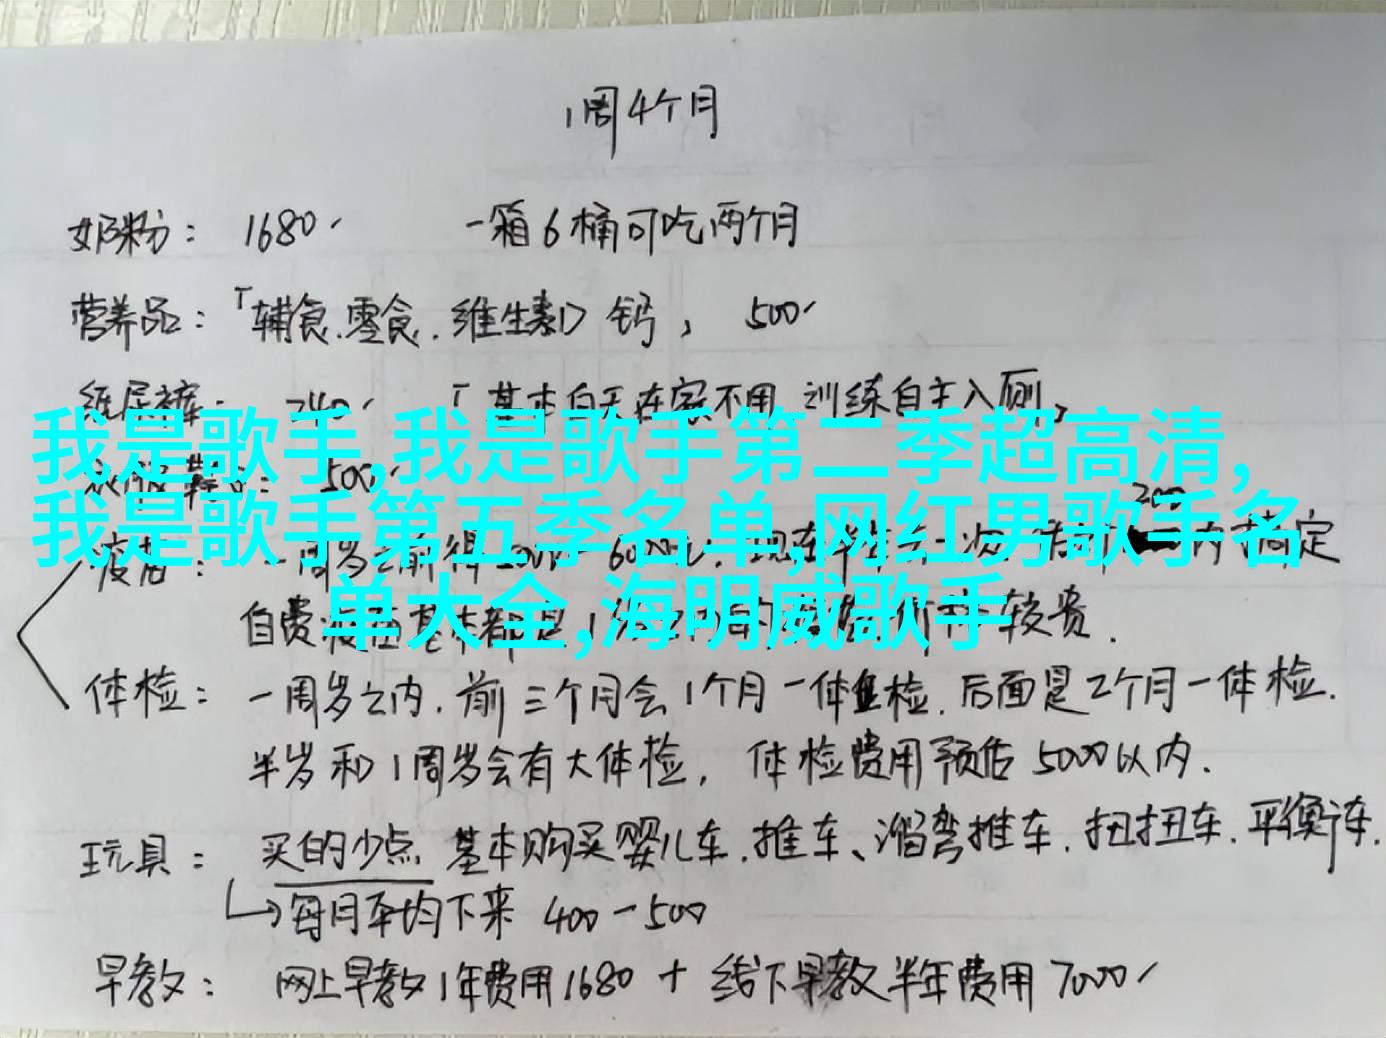 1周4个月
奶粉： 1680 一箱6桶可吃两个月
营养品：「辅食.零食.维生素D 钙， 500
纸尿裤： 240 「基本白天在家不用 训练自主入厕，
我是歌手,我是歌手第二季超高清,
500
我是歌手第五季名单,网红男歌手名
单大全,海明威歌手
疫苗： 一周岁之前得 搞定
自费 较贵.
体检： 一周岁之内.前三个月会1个月一体检.后面是2个月一体检.
半岁和1周岁会有大体检， 体检费用预估5000以内.
玩具： 买的少点 基本购买婴儿车.推车、溜弯推车.扭扭车.平衡车.
每月平均下来 400-500
早教： 网上早教1年费用1680 + 线下早教半年费用7000